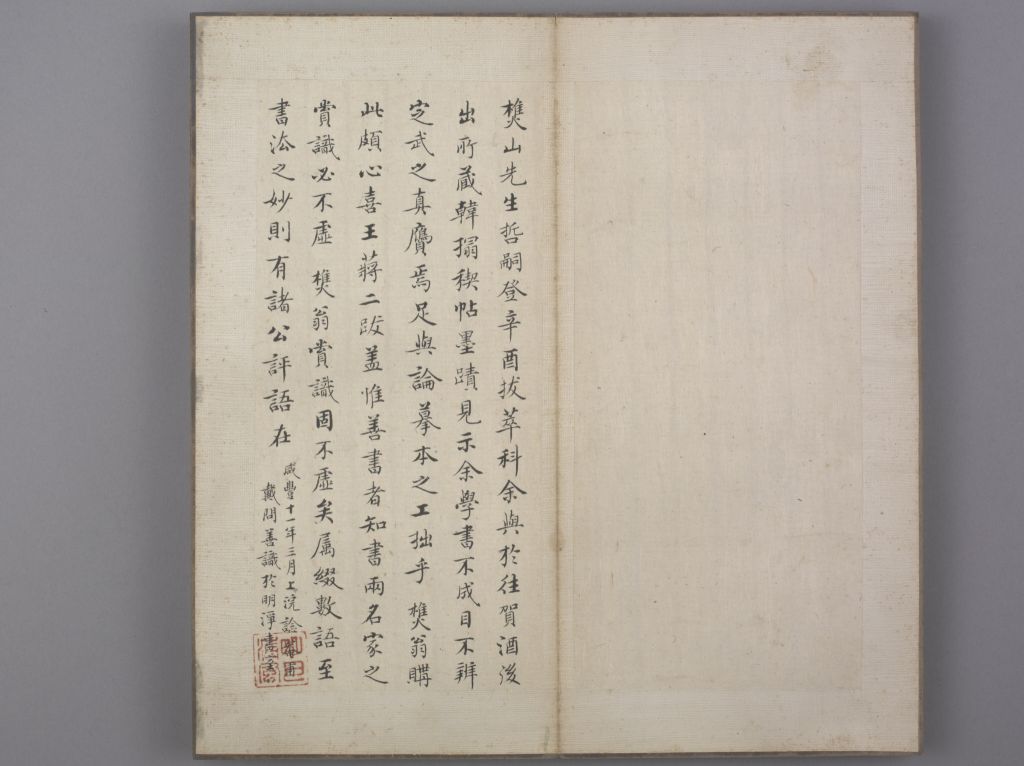 樵山先生哲嗣登辛酉拔萃科余與於往賀酒後
出所藏韓搨稧帖墨蹟見示余學書不成目不辨
定武之真贗焉足與論摹本之工拙乎 樵翁購
此頗心喜王蔣二跋盖惟善書者知書兩名家之
賞識必不虛 樵翁賞識固不虛矣属綴數語至
書法之妙則有諸公評語在
咸豐十一年三月上浣
戴問善識於明淨書